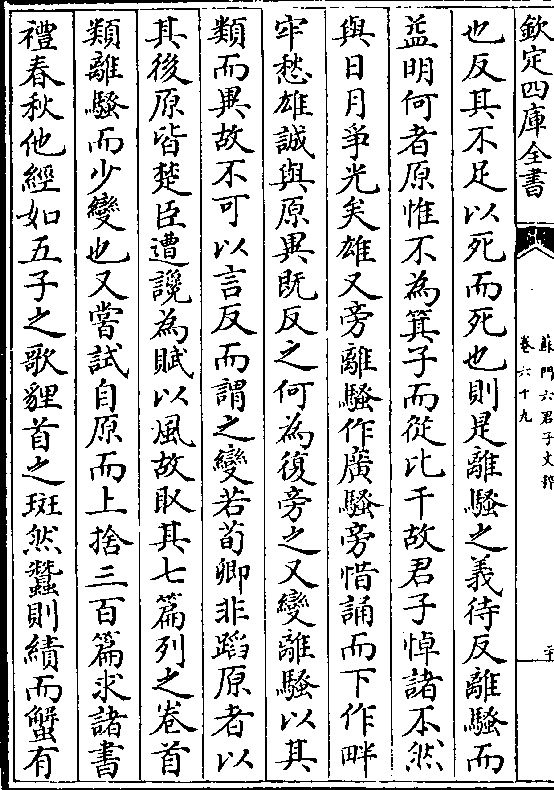 欽定四庫全書
蘇門六君子文粹
卷六十九
也反其不足以死而死也則是離騷之義待反離騷而
益明何者原惟不為箕子而從比干故君子悼諸不然
與日月爭光矣雄又旁離騷作廣騷旁惜誦而下作畔
牢愁雄誠與原異既反之何為復旁之又變離騷以其
類而異故不可以言反而謂之變若荀卿非蹈原者以
其後原皆楚臣遭讒為賦以風故取其七篇列之卷首
類離騷而少變也又嘗試自原而上捨三百篇求諸書
禮春秋他經如五子之歌貍首之斑然蠶則績而蟹有